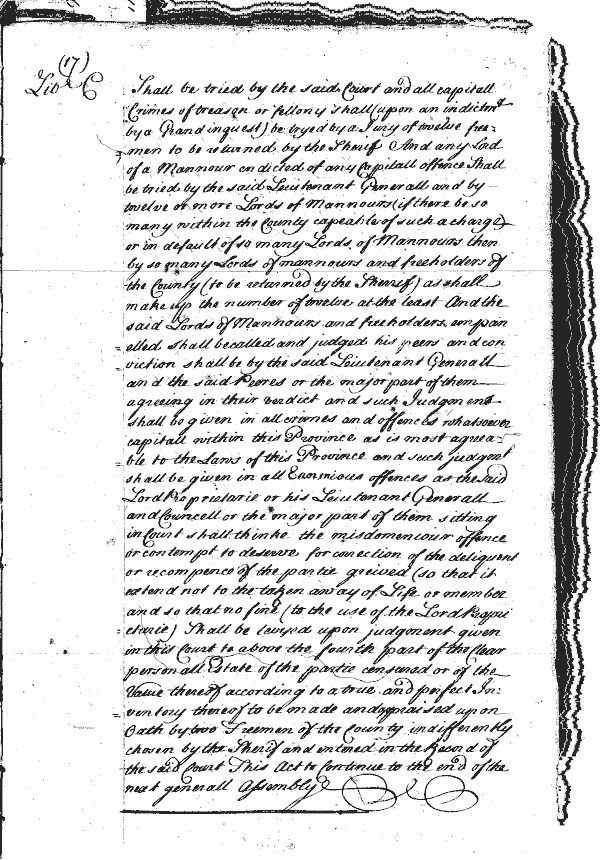 (17)
Lib C
Shall be tried by the said Court and all capitall
Crimes of treason or fellony shall (upon an indictmt
by a Grand inquest) be tryed by a Jury of twelve free-
men to be returned by the Sherif And any Lord
of a Mannour endicted of any Capitall offence Shall
be tried by the said Leiutenant Generall and by
twelve or more Lords of Mannours (if there be so
many within the County capeable of such a charge)
or in default of so many Lords of Mannours then
by so many Lords of mannours and freeholders of
the County (to be returned by the Sherrif) as shall
make up the number of twelve at the least And the
said Lords of Mannours and freeholders, empan
elled shall be called and judged his peers and con
viction shall be by the said Leiutenant Generall
and the said Peeres or the major part of them
agreeing in their verdict and such Judgment
shall be given in all crimes and offences whatsoever
capitall within this Province as is most agrea-
ble to the Laws of this Province and such judgmt
shall be given in all Enormious offences as the said
Lord Proprietarie or his Leiutenant Generall
and Councell or the major part of them sitting
in Court shall thinke the misdemeniour offence
or contempt to deserve for correction of the deliquent
or recompence of the partie greived (so that it
extend not to the taken away of Life or member
and so that no fine (to the use of the Lord Propri
etarie) Shall be levyed upon judgment given
in this Court to above the fourth part of the clear
personall Estate of the partie censured or of the
Value thereof according to a true and perfect In-
ventory thereof to be made and appraised upon
Oath by two Freemen of the County indifferently
chosen by the Sherif and entered in the Record of
the said Court This Act to Continue to the end of the
next generall Assembly